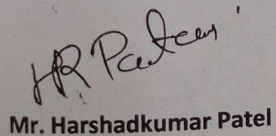 HR Patel
Mr. Harshadkumar Patel